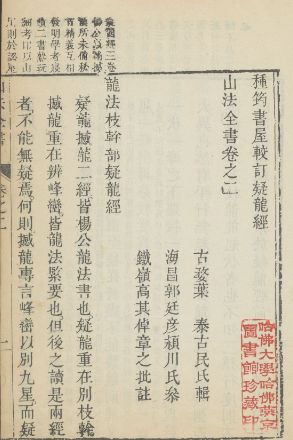 種筠書屋較訂疑龍經
山法全書卷之二
古婺葉 泰古民氏輯
海昌郭廷彥頏川氏叅
鐵嶺高其倬章之批註
龍法枝幹部疑龍經
疑龍撼龍二經皆楊公龍法書也疑龍重在別枝幹
撼龍重在辨峰巒皆龍法緊要也但後之讀是兩經
者不能無疑焉何則撼龍專言峰巒以別九星而疑
哈佛大學哈佛燕京
圖書館珍藏印